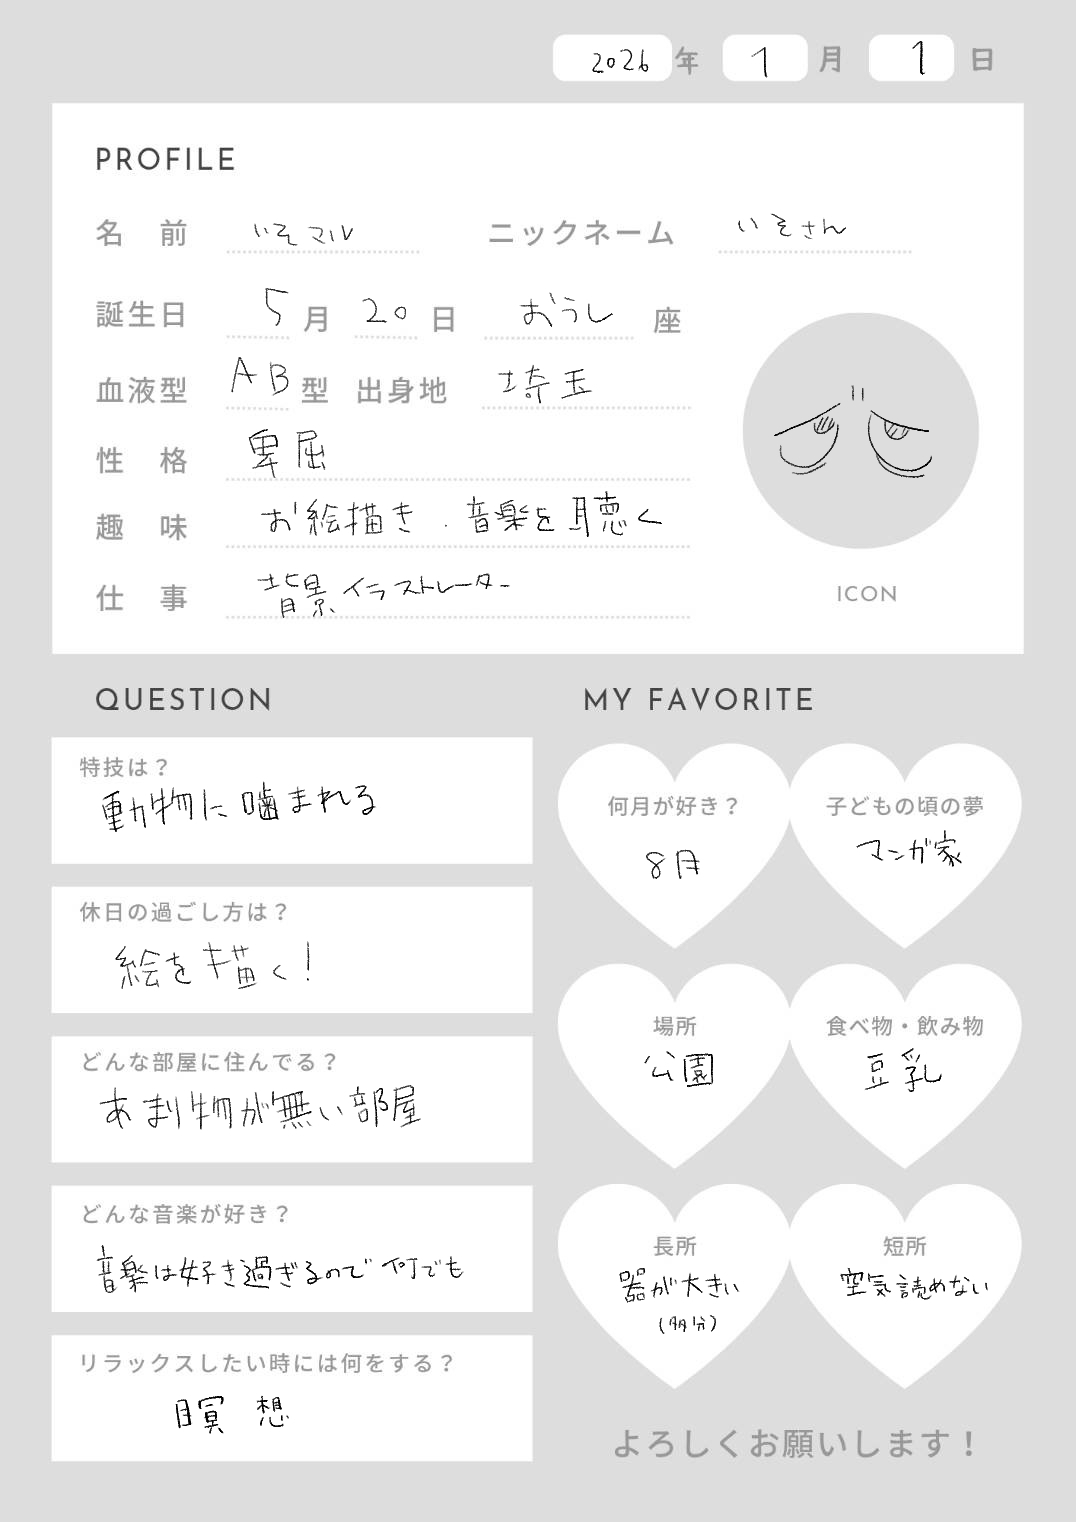 2026年 1月 1日
PROFILE
名 前 いそマル ニックネーム いそさん
誕生日 5月 20日 おうし 座
血液型 AB型 出身地 埼玉
性 格 卑屈
趣 味 お絵描き.音楽を聴く
仕 事 背景イラストレーター
ICON
QUESTION
特技は？
動物に噛まれる
休日の過ごし方は？
絵を描く！
どんな部屋に住んでる？
あまり物が無い部屋
どんな音楽が好き？
音楽は好き過ぎるので何でも
リラックスしたい時には何をする？
瞑想
MY FAVORITE
何月が好き？
8月
子どもの頃の夢
マンガ家
場所
公園
食べ物・飲み物
豆乳
長所
器が大きい
(多分)
短所
空気読めない
よろしくお願いします！